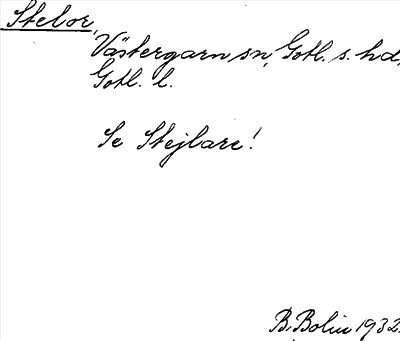 Stelor,
Västergarn sn, Gotl. s. hd,
Gotl. l.
Se Stejlare!
B. Bolin 1932.